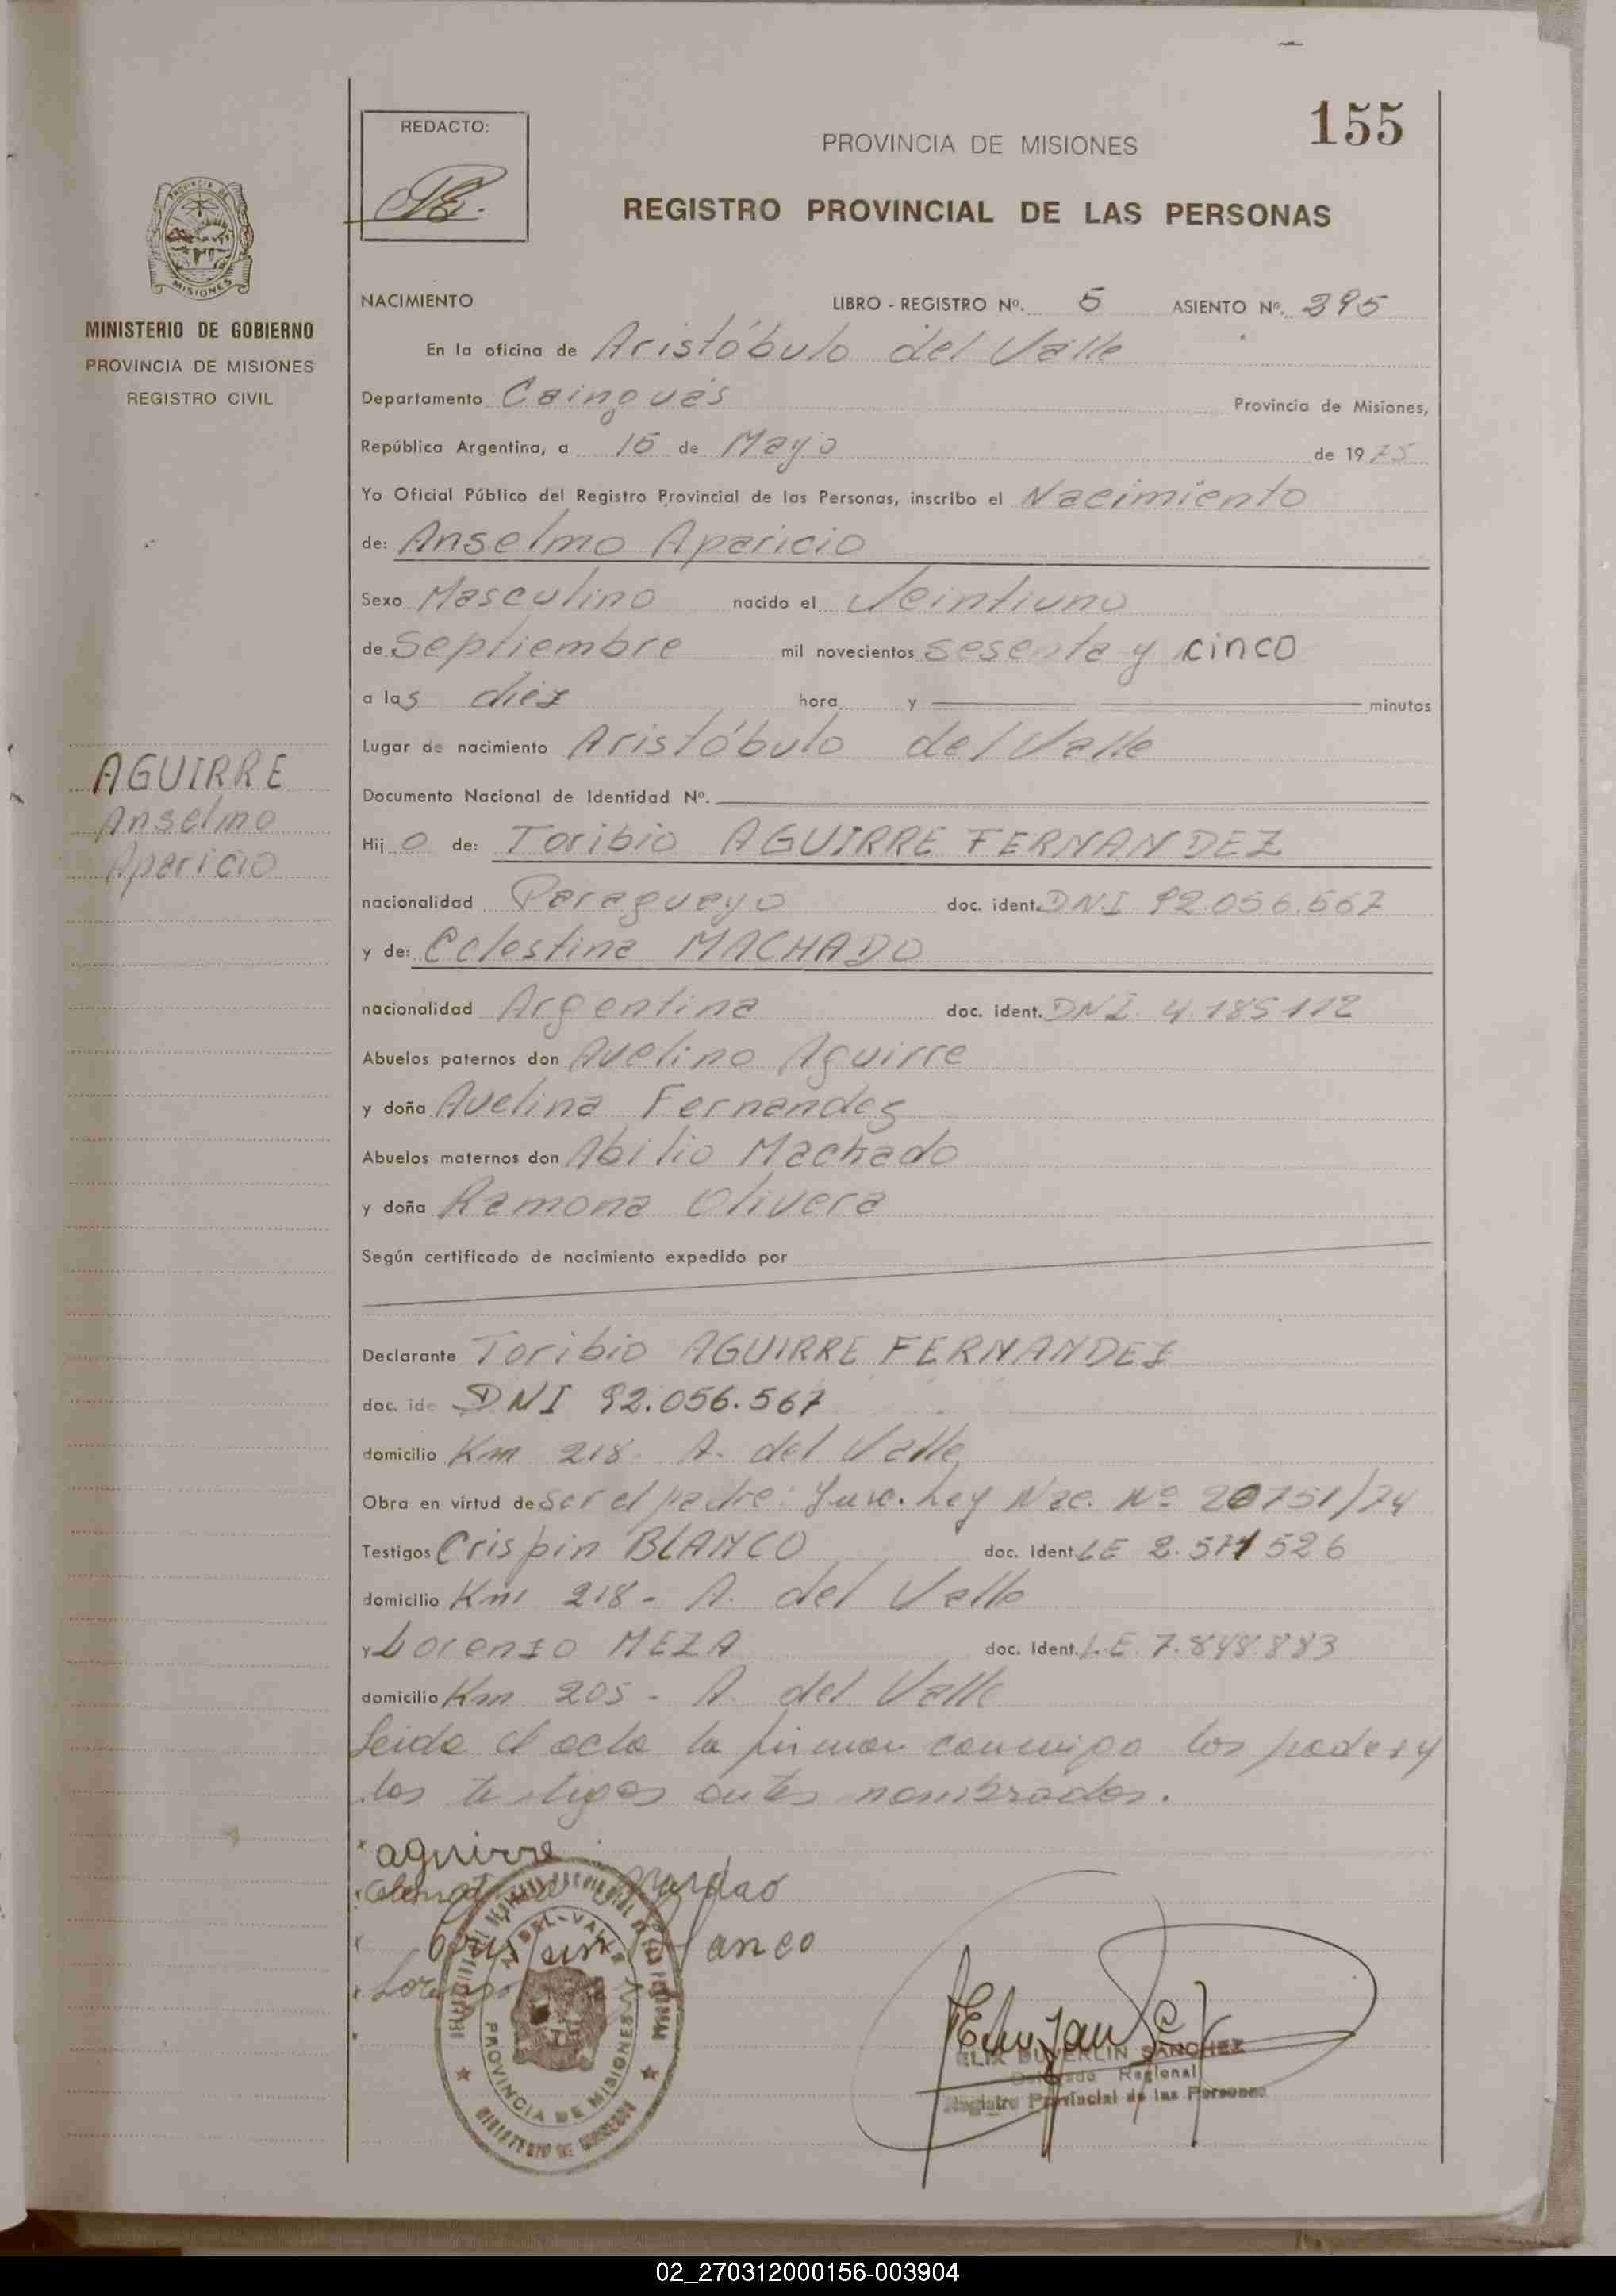 155
REDACTO:
PROVINCIA DE MISIONES
REGISTRO PROVINCIAL DE LAS PERSONAS
PROVINCIA DE
MISIONES
MINISTERIO DE GOBIERNO
PROVINCIA DE MISIONES
REGISTRO CIVIL
NACIMIENTO LIBRO - REGISTRO Nº. 5 ASIENTO Nº. 395
En la oficina de Aristóbulo del Valle
Departamento Cainguás Provincia de Misiones,
República Argentina, a 15 de Mayo de 1975
Yo Oficial Público del Registro Provincial de las Personas, inscribo el Nacimiento
de: Anselmo Aparicio
Sexo Masculino nacido el Veintiuno
de Septiembre mil novecientos sesenta y cinco
a las diez hora y minutos
Lugar de nacimiento Aristóbulo del Valle
AGUIRRE
Anselmo
Aparicio
Documento Nacional de Identidad Nº.
Hijo de: Toribio AGUIRRE FERNANDEZ
nacionalidad Paraguayo doc. ident. DNI 92.056.567
y de: Celestina MACHADO
nacionalidad Argentina doc. ident. DNI. 4.185112
Abuelos paternos don Avelino Aguirre
y doña Avelina Fernandez
Abuelos maternos don Abilio Machado
y doña Ramona Olivera
Según certificado de nacimiento expedido por
Declarante Toribio AGUIRRE FERNANDEZ
doc. ide DNI 92.056.567
domicilio Km 218. A. del Valle
Obra en virtud de ser el padre: Ley Nac. Nº 20751/74
Testigos Crispin BLANCO doc. ident. LE 2.571526
domicilio Km 218 - A. del Valle
y Lorenzo MEZA doc. Ident. L.E. 7.848.883
domicilio Km 205 - A. del Valle
Leida el acta la firman conmigo los padres y
los testigos antes nombrados.
aguirre
Blanco
Lorenzo
A. DEL VALLE
PROVINCIA DE MISIONES
MINISTERIO DE GOBIERNO
SANCHEZ
Delegado Regional
Registro Provincial de las Personas
02_270312000156-003904